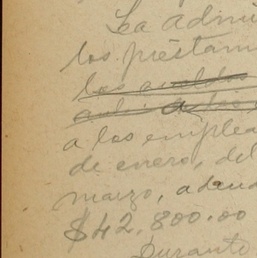 La admi
los préstam
los sueldos
a los emplea
de enero, del
marzo, adeud
$42,800.00
Durante